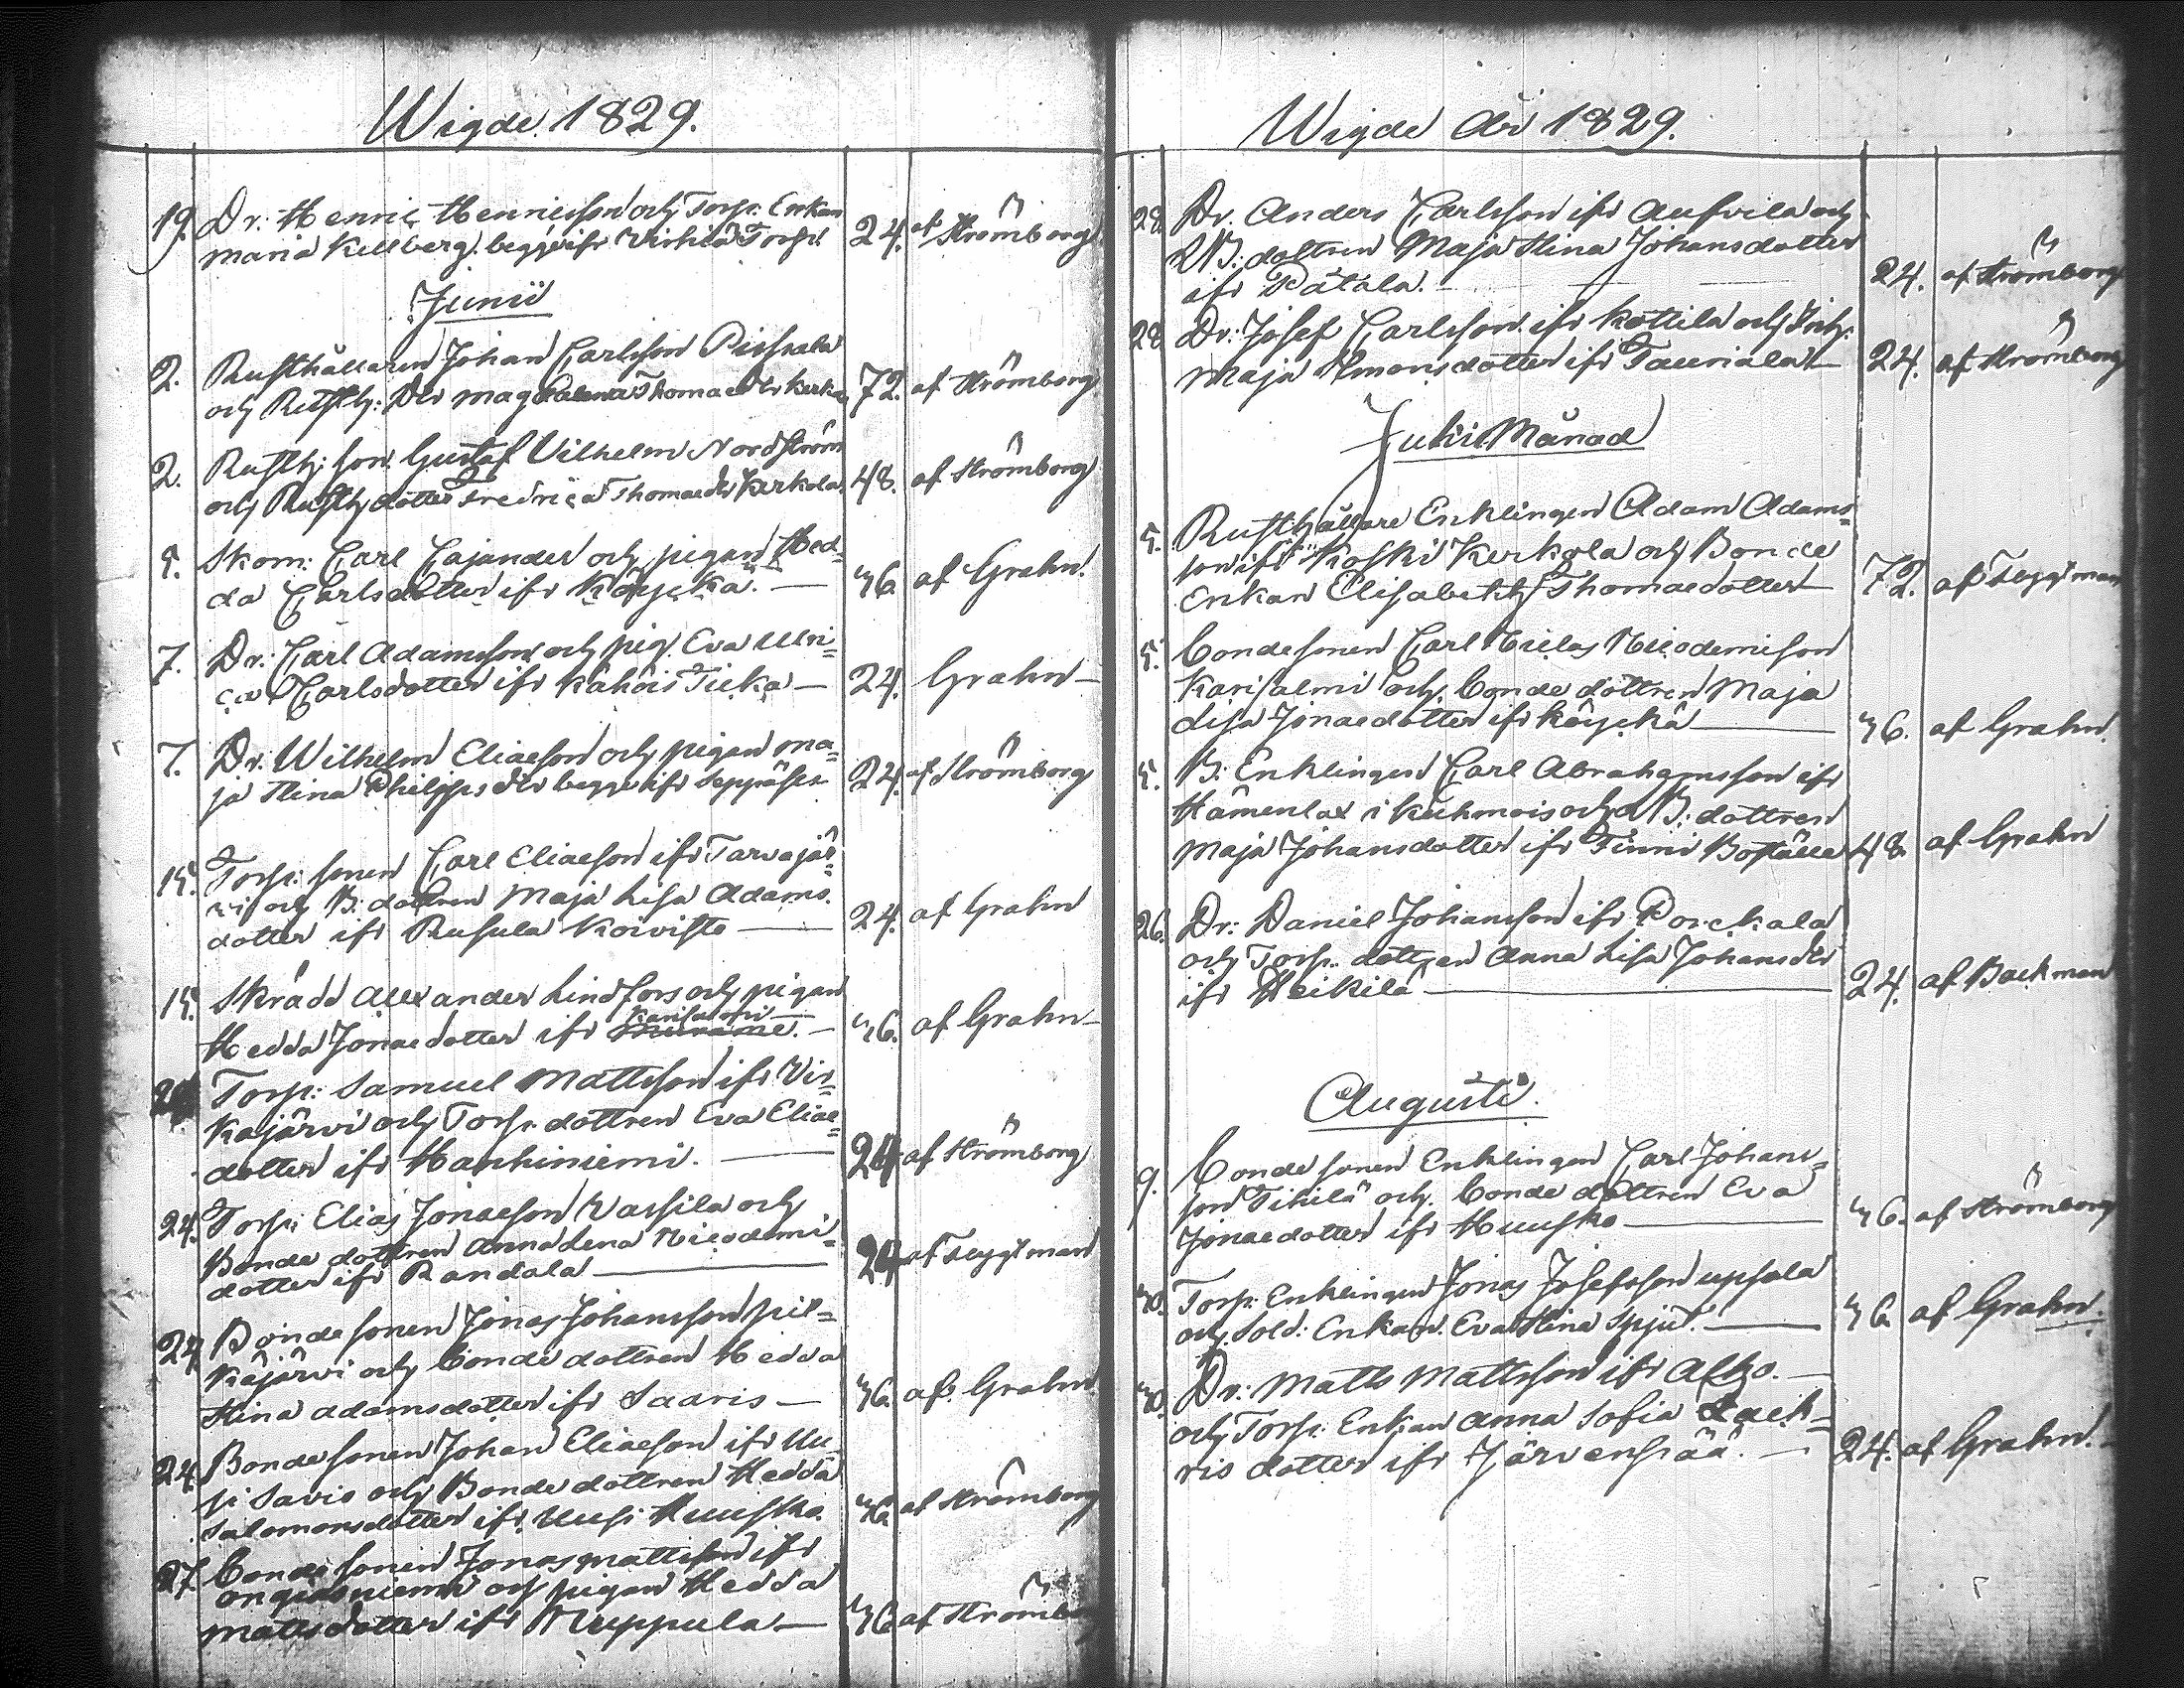 Wigde 1829.
19. Dr: Henric Henricsson och Torp: Enkan
Maria Kellberg begge ifr Torp. 24. af Strömborg
Junii
2. Rusthållaren Johan Carlsson Pirskala
och Rusth: Dtr Magdalena Thomaedtr Kerkola 72. af Strömborg
2. Rusth: son Gustaf Vilhelm Nordström
och Rusth dotter Fredrica Thomaedtr Kerkola. 48. af Strömborg
5. Skom: Carl Cajander och pigan Hed=
da Carlsdotter ifr Käyckä. 36. af Grahn.
7. Dr: Carl Adamsson och pig. Eva Ulri=
ca Carlsdotter ifr Kähöis Tieka 24. Grahn
7. Dr: Wilhelm Eliaeson och pigan Ma=
ja Stina Philipsdtr begge ifr Seppäs 24. af Strömborg
15. Torp: sonen Carl Eliaeson ifr Tarvajär=
vi och B: dottren Maja Lisa Adams
dotter ifr Rusula Koivisto 24. af Grahn
15. Skrädd Alexander Lindfors och pigan
Hedda Jonaedotter ifr Karisalmi 36. af Grahn
Torp: Samuel Mattsson ifr Vir=
kajärvi och Torp. dottren Eva Eliae=
dotter ifr Hankiniemi. 24 af Strömborg
24. Torp: Elias Jonaeson Vassila och
Bonde dottren Anna Lena Nicodemi=
dotter ifr Randala 24 af Tuggtman
24 Bondesonen Jonas Johansson Pil=
kajärvi och bonde dottren Hedda
Stina Adamsdotter ifr Saaris 36. af Grahn
24. Bondesonen Johan Eliaeson ifr Uu=
si Savio och Bonde dottren Hedda
Salomonsdotter ifr Uusi Huuska 36. af Strömborg
27. Bonde sonen Jonas Mattsson ifr
Angesniemi och pigan Hedda
Mattsdotter ifr Nuppula 36 af Strömbo
Wigde År 1829.
28. Dr. Anders Carlsson ifr Aufvila och
B: dottren Maja Stina Johansdotter
ifr Pätälä. 24. af Strömborg
28 Dr: Josef Carlsson ifr Kottila och Inh:
Maja Simonsdotter ifr Tauriala 24. af Strömborg
Julii Månad
5. Rusthållare Enklingen Adam Adams=
son ifr Koski Kerkola och Bonde
Enkan Elisabeth Thomaedotter 72. af Tuggtman
5. Bondesonen Carl Niclas Nicodemison
Karisalmi och bonde dottren Maja
Lisa Jonaedotter ifr Käyckä 36. af Grahn.
5. B: Enklingen Carl Abrahamsson ifr
Hämenlax i Kuhmois och B: dottren
Maja Johansdotter ifr Finni Boställe 48. af Grahn
26. Dr: Daniel Johansson ifr Porckala
och Torp. dottren Anna Lisa Johansdtr
ifr Heikilä 24. af Backman
Augusti.
9. Bonde sonen Enklingen Carl Johans=
son Tikilä och bonde dottren Eva
Jonaedotter ifr Huusko 36. af Strömborg
30. Torp: Enklingen Jonas Josefsson Upsala
och Sold: Enkan Eva Stina Spjut. 36 af Grahn.
30. Dr: Matts Mattsson ifr Alho.
och Torp: Enkan Anna Sofia Zach=
ris dotter ifr Järvenpää. 24. af Grahn.